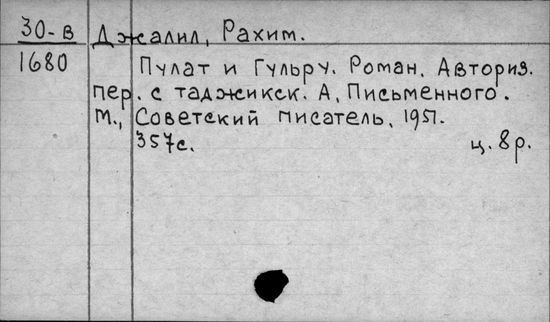 30-В Джалил, Рахим.
1680 Пулат и Гульру. Роман. Авториз.
пер. с таджикск. А. Письменного.
М., Советский писатель, 1951.
357с. ц. 8р.